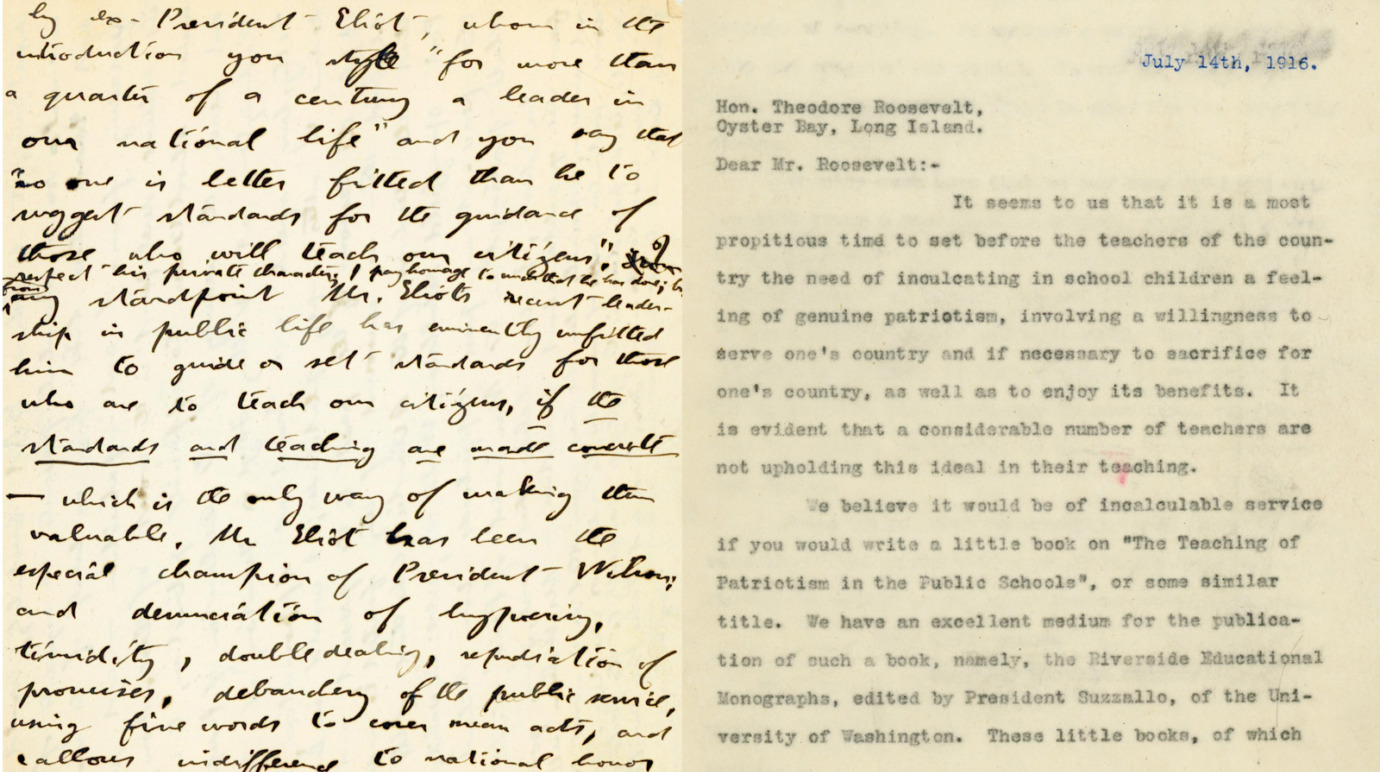 by ex-President Eliot, whom in the
introduction you style "for more than
a quarter of a century a leader in
our national life" and you say that
"no one is better fitted than he to
suggest standards for the guidance of
those who will teach our citizens".
respect his private character, I pay homage to much that he has done; b
from
any standpoint Mr. Eliot's recent leader-
ship in public life has eminently unfitted
him to guide or set standards for those
who are to teach our citizens, if the
standards and teaching are made concrete
— which is the only way of making them
valuable. Mr Eliot has been the
especial champion of President Wilson;
and denunciation of hypocrisy,
timidity, double dealing, repudiation of
promises, debauchery of the public service,
using fine words to cover mean acts, and
callous indifference to national honor
July 14th, 1916.
Hon. Theodore Roosevelt,
Oyster Bay, Long Island.
Dear Mr. Roosevelt:-
It seems to us that it is a most
propitious time to set before the teachers of the coun-
try the need of inculcating in school children a feel-
ing of genuine patriotism, involving a willingness to
serve one's country and if necessary to sacrifice for
one's country, as well as to enjoy its benefits. It
is evident that a considerable number of teachers are
not upholding this ideal in their teaching.
We believe it would be of incalculable service
if you would write a little book on "The Teaching of
Patriotism in the Public Schools", or some similar
title. We have an excellent medium for the publica-
tion of such a book, namely, the Riverside Educational
Monographs, edited by President Suzzallo, of the Uni-
versity of Washington. These little books, of which